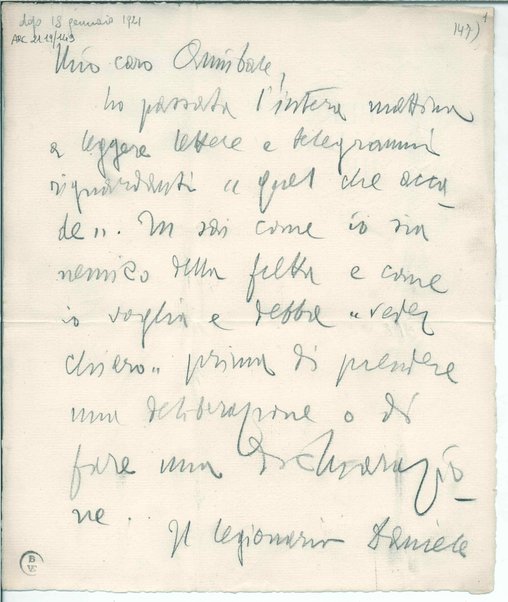 dopo 18 gennaio 1921
ARC 21.19/143
147)
1
Mio caro Annibale,
ho passata l'intera mattina
a leggere lettere e telegrammi
riguardanti "quel che acca-
de". Tu sai come io sia
nemico della fretta e come
io voglia e debba "veder
chiaro" prima di prendere
una deliberazione o di
fare una dichiarazio-
ne..
Il legionario Daniele
B
VE